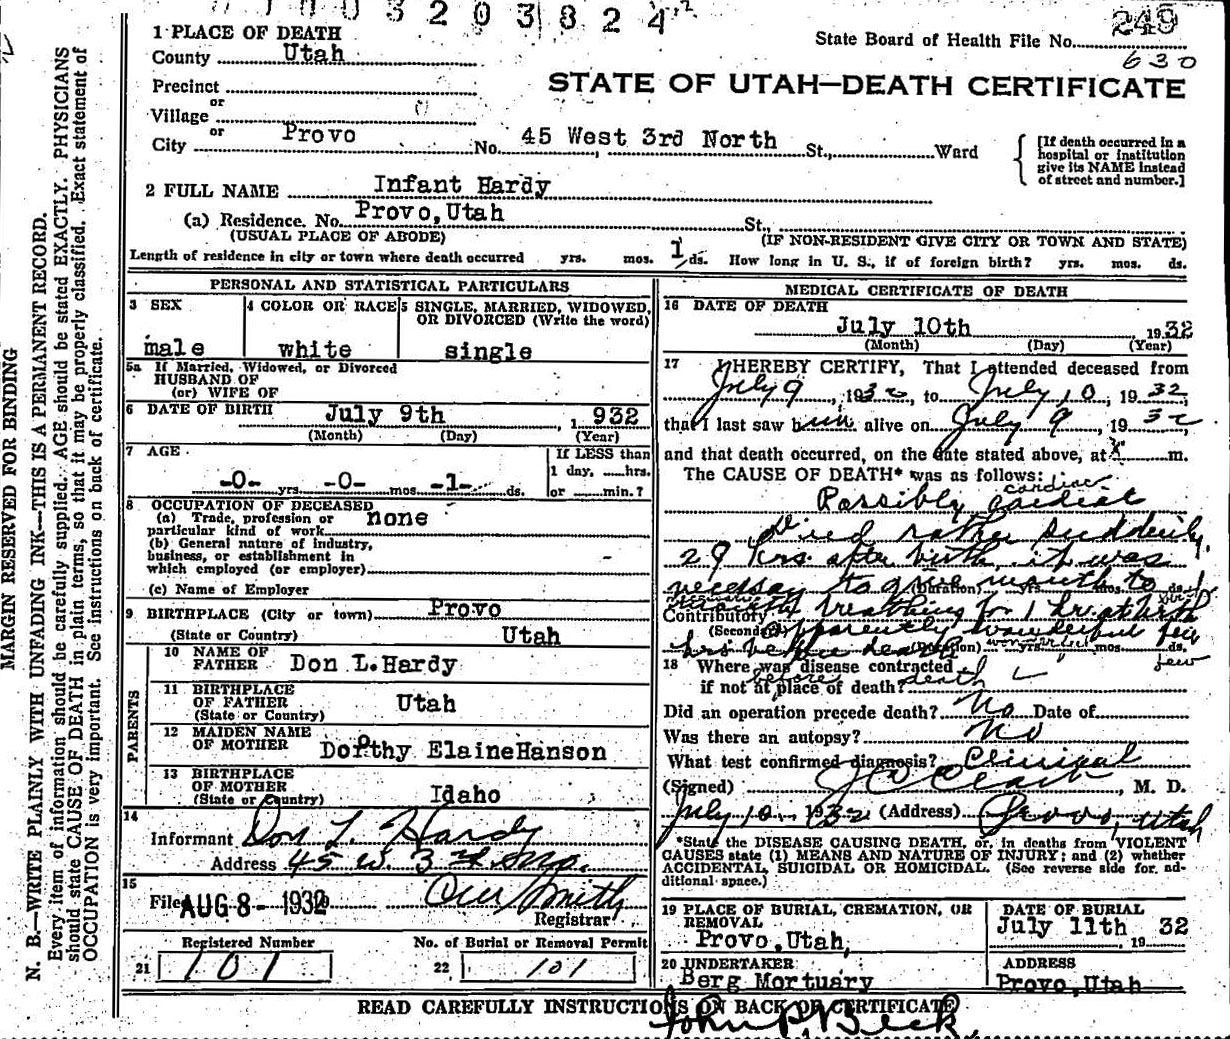 003203824
249
State Board of Health File No.
630
1 PLACE OF DEATH
County Utah
STATE OF UTAH—DEATH CERTIFICATE
Precinct
or
Village
or
City Provo No. 45 West 3rd North St., Ward
[If death occurred in a hospital or institution give its NAME instead of street and number.]
2 FULL NAME Infant Hardy
(a) Residence. No. Provo, Utah St.,
(USUAL PLACE OF ABODE) (IF NON-RESIDENT GIVE CITY OR TOWN AND STATE)
Length of residence in city or town where death occurred yrs. mos. 1 ds. How long in U. S., if of foreign birth? yrs. mos. ds.
PERSONAL AND STATISTICAL PARTICULARS
3 SEX
male
4 COLOR OR RACE
white
5 SINGLE, MARRIED, WIDOWED,
OR DIVORCED (Write the word)
single
5a If Married, Widowed, or Divorced
HUSBAND OF
(or) WIFE OF
6 DATE OF BIRTH July 9th, 1932
(Month) (Day) (Year)
7 AGE
-0- yrs -0- mos -1- ds.
If LESS than
1 day, hrs.
or min.?
8 OCCUPATION OF DECEASED
(a) Trade, profession or none
particular kind of work
(b) General nature of industry,
business, or establishment in
which employed (or employer)
(c) Name of Employer
9 BIRTHPLACE (City or town) Provo
(State or Country) Utah
PARENTS
10 NAME OF
FATHER Don L. Hardy
11 BIRTHPLACE
OF FATHER Utah
(State or Country)
12 MAIDEN NAME
OF MOTHER Dorthy Elaine Hanson
13 BIRTHPLACE
OF MOTHER
(State or Country) Idaho
14
Informant Don L. Hardy
Address 45 W. 3rd
15
Filed AUG 8 - 1932
Smith
Registrar
Registered Number
21 101
No. of Burial or Removal Permit
22 101
MEDICAL CERTIFICATE OF DEATH
16 DATE OF DEATH
July 10th 1932
(Month) (Day) (Year)
17 I HEREBY CERTIFY, That I attended deceased from
July 9, 1932, to July 10, 1932,
that I last saw him alive on July 9, 1932
and that death occurred, on the date stated above, at m.
The CAUSE OF DEATH* was as follows:
cardiac
Possibly cardiac
Died rather suddenly,
29 hrs after birth, it was
necessary to give mouth to
(Duration) yrs. mos. ds.
mouth breathing for 1 hr. at birth
Contributory
(Secondary) apparently wonderful few
hrs before death
(Duration) yrs. mos. ds.
few
18 Where was disease contracted
if not at place of death?
before death
Did an operation precede death? No Date of
Was there an autopsy? No
What test confirmed diagnosis? Clinical
(Signed) M. D.
July 10 1932 (Address) Provo, Utah
*State the DISEASE CAUSING DEATH, or, in deaths from VIOLENT
CAUSES state (1) MEANS AND NATURE OF INJURY; and (2) whether
ACCIDENTAL, SUICIDAL OR HOMICIDAL. (See reverse side for ad-
ditional space.)
19 PLACE OF BURIAL, CREMATION, OR
REMOVAL
Provo, Utah,
DATE OF BURIAL
July 11th 1932
20 UNDERTAKER
Berg Mortuary
ADDRESS
Provo, Utah
READ CAREFULLY INSTRUCTIONS ON BACK OF CERTIFICATE
John P. Beck
MARGIN RESERVED FOR BINDING
N. B.—WRITE PLAINLY WITH UNFADING INK—THIS IS A PERMANENT RECORD.
Every item of information should be carefully supplied. AGE should be stated EXACTLY. PHYSICIANS
should state CAUSE OF DEATH in plain terms, so that it may be properly classified. Exact statement of
OCCUPATION is very important. See instructions on back of certificate.